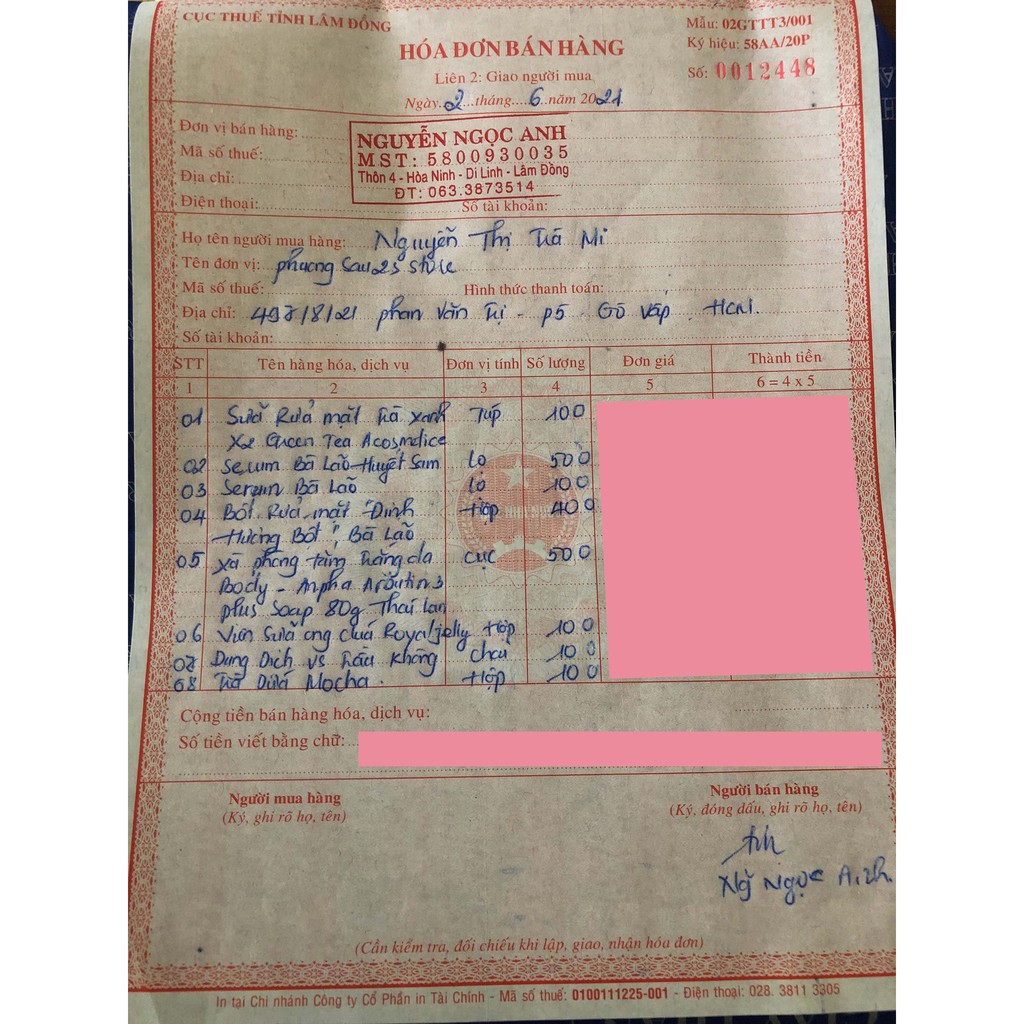 CỤC THUẾ TỈNH LÂM ĐỒNG
Mẫu: 02GTTT3/001
HÓA ĐƠN BÁN HÀNG
Ký hiệu: 58AA/20P
Liên 2: Giao người mua
Số: 0012448
Ngày 2 tháng 6 năm 2021
Đơn vị bán hàng:
NGUYỄN NGỌC ANH
Mã số thuế:
MST: 5800930035
Địa chỉ:
Thôn 4 - Hòa Ninh - Di Linh - Lâm Đồng
Điện thoại:
ĐT: 063.3873514
Số tài khoản:
Họ tên người mua hàng: Nguyễn Thị Trà Mi
Tên đơn vị: phuong Sau25 Store
Mã số thuế: Hình thức thanh toán:
Địa chỉ: 497/8/21 phan Văn Trị - p5 - Gò Vấp. HCM.
Số tài khoản:
STT Tên hàng hóa, dịch vụ Đơn vị tính Số lượng Đơn giá Thành tiền
1 2 3 4 5 6 = 4 x 5
01 Sữa Rửa mặt Trà xanh Tuýp 100
X2 Green Tea Acosmetics
02 Serum Bà Lão Huyết Sâm Lọ 500
03 Serum Bà Lão Lọ 100
04 Bột Rửa mặt "Đinh Hộp 400
Hương Bột" Bà Lão
05 Xà phòng tắm trắng da cục 500
Body - Anpha Arbutin 3
plus Soap 80g Thai Lan
06 Viên Sữa ong chúa Royal jelly Hộp 100
07 Dung Dịch vs Trầu không chai 100
08 Trà Dứa Mocha. Hộp 100
Cộng tiền bán hàng hóa, dịch vụ:
Số tiền viết bằng chữ:
Người mua hàng
Người bán hàng
(Ký, ghi rõ họ, tên)
(Ký, đóng dấu, ghi rõ họ, tên)
Ng Ngọc Anh
(Cần kiểm tra, đối chiếu khi lập, giao, nhận hóa đơn)
In tại Chi nhánh Công ty Cổ Phần in Tài Chính - Mã số thuế: 0100111225-001 - Điện thoại: 028. 3811 3305